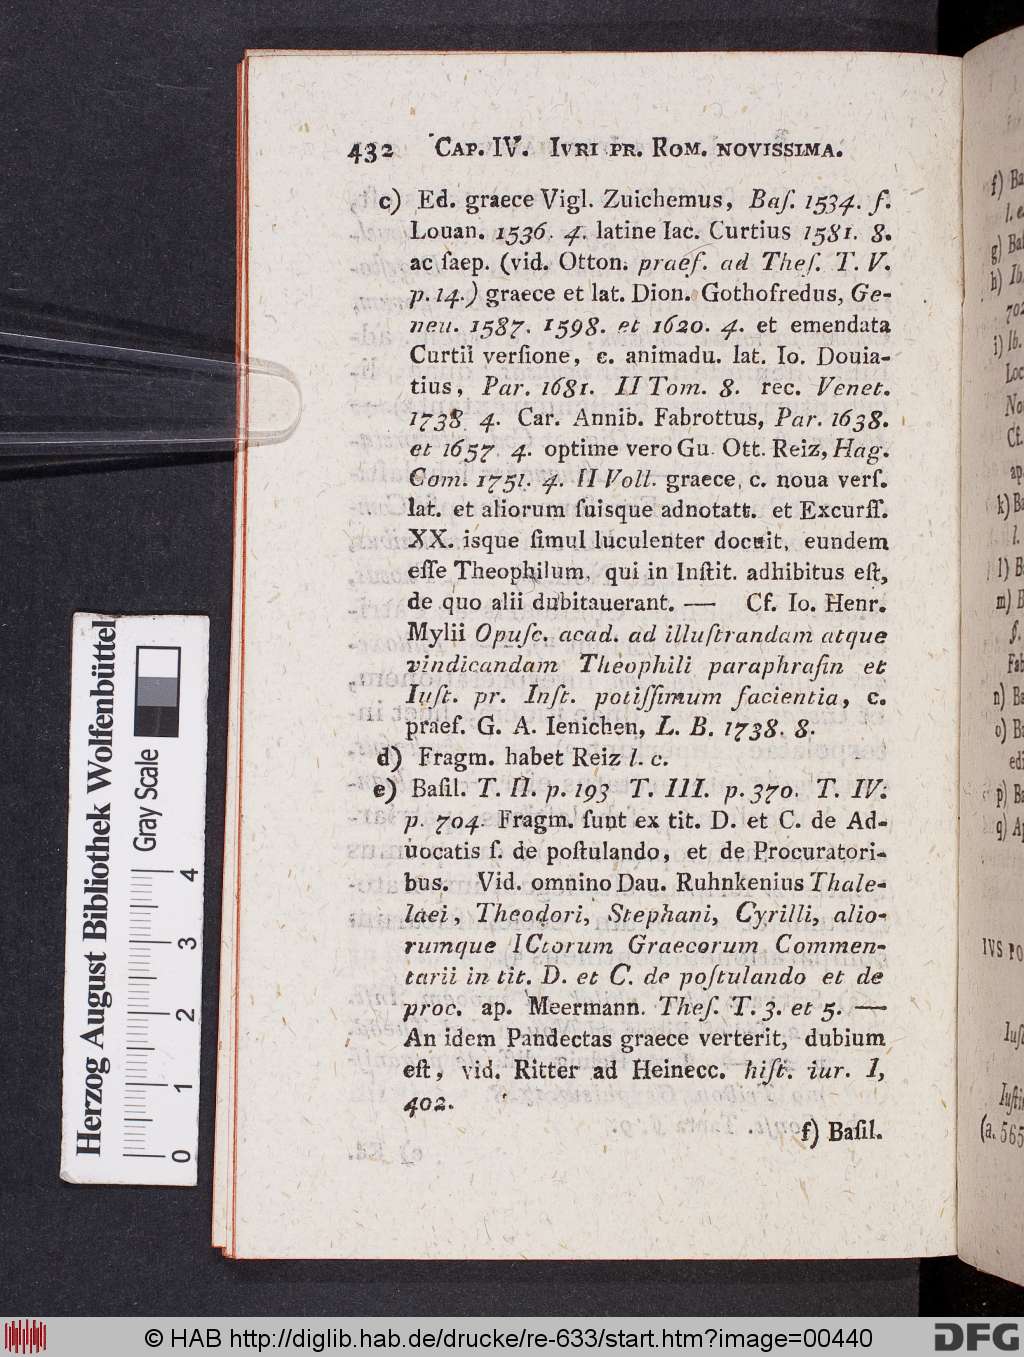 432 CAP. IV. IVRI PR. ROM. NOVISSIMA.
c) Ed. graece Vigl. Zuichemus, Baſ. 1534. f.
Louan. 1536. 4. latine Iac. Curtius 1581. 8.
ac ſaep. (vid. Otton. praef. ad Theſ. T. V.
p. 14.) graece et lat. Dion. Gothofredus, Ge-
neu. 1587. 1598. et 1620. 4. et emendata
Curtii verſione, c. animadu. lat. Io. Douia-
tius, Par. 1681. II Tom. 8. rec. Venet.
1738 4. Car. Annib. Fabrottus, Par. 1638.
et 1657 4. optime vero Gu. Ott. Reiz, Hag.
Com. 1751. 4. II Voll. graece, c. noua verſ.
lat. et aliorum ſuisque adnotatt. et Excurſſ.
XX. isque ſimul luculenter docuit, eundem
eſſe Theophilum, qui in Inſtit. adhibitus eſt,
de quo alii dubitauerant. — Cf. Io. Henr.
Mylii Opuſc. acad. ad illuſtrandam atque
vindicandam Theophili paraphraſin et
Iuſt. pr. Inſt. potiſſimum facientia, c.
praef. G. A. Ienichen, L. B. 1738. 8.
d) Fragm. habet Reiz l. c.
e) Baſil. T. II. p. 193 T. III. p. 370. T. IV.
p. 704. Fragm. ſunt ex tit. D. et C. de Ad-
uocatis ſ. de poſtulando, et de Procuratori-
bus. Vid. omnino Dau. Ruhnkenius Thale-
laei, Theodori, Stephani, Cyrilli, alio-
rumque ICtorum Graecorum Commen-
tarii in tit. D. et C. de poſtulando et de
proc. ap. Meermann. Theſ. T. 3. et 5. —
An idem Pandectas graece verterit, dubium
eſt, vid. Ritter ad Heinecc. hiſt. iur. I,
402.
f) Baſil.
Herzog August Bibliothek Wolfenbüttel
Gray Scale
0 1 2 3 4
© HAB http://diglib.hab.de/drucke/re-633/start.htm?image=00440
DFG